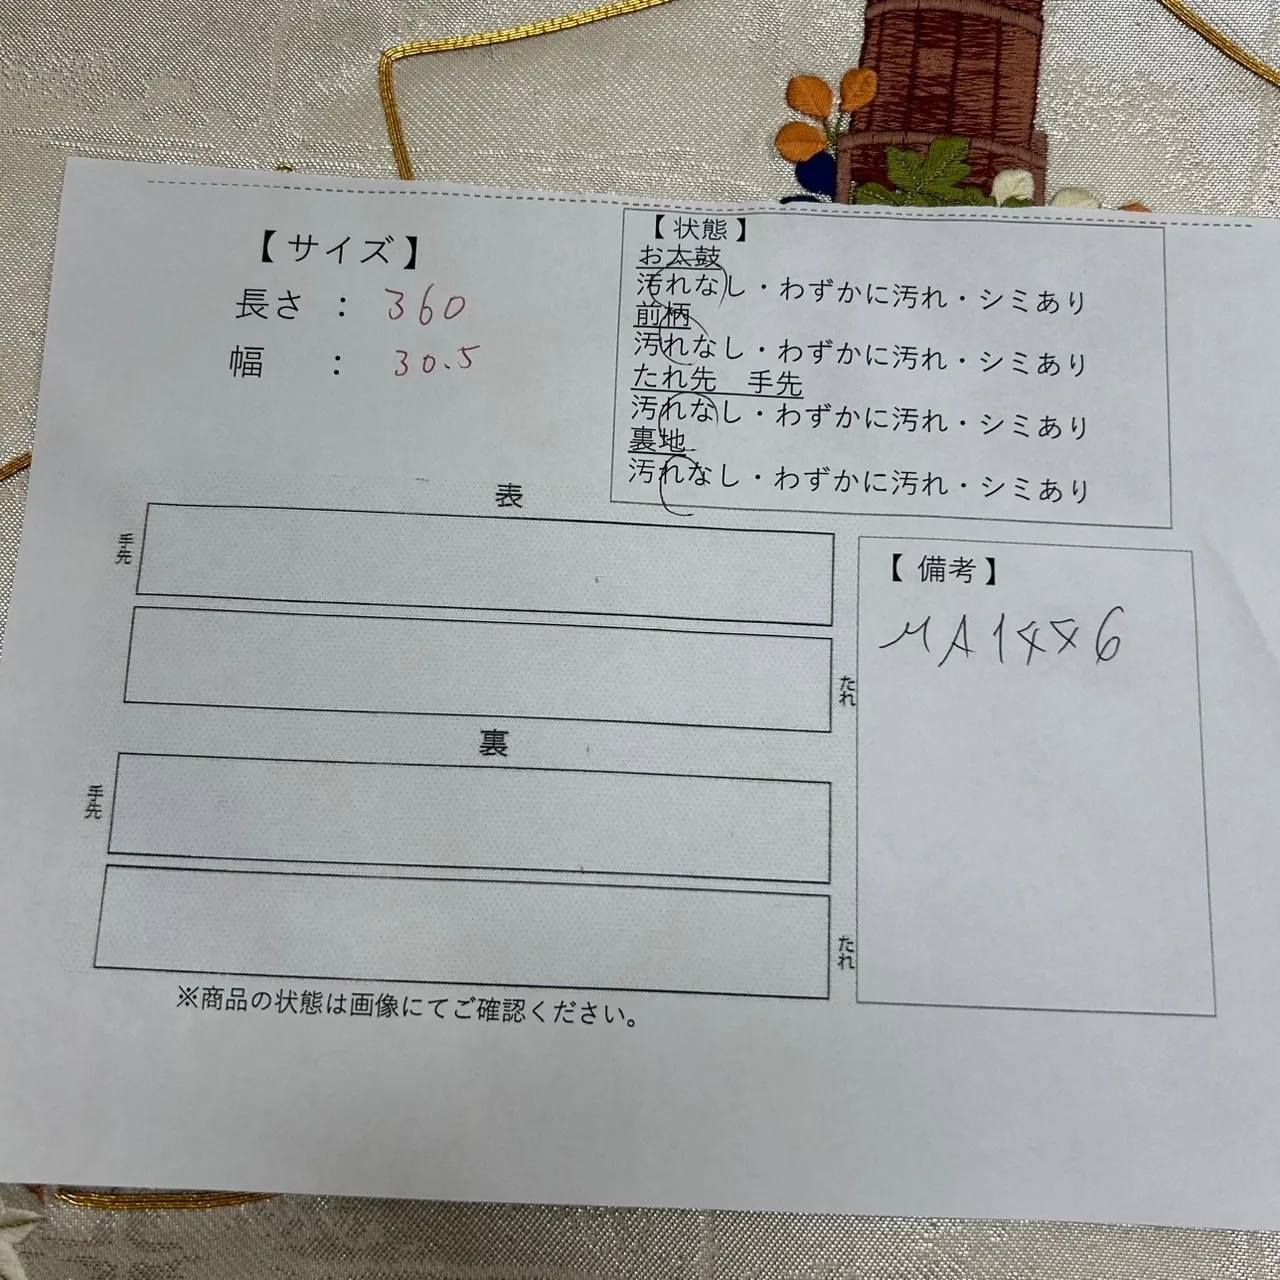 【サイズ】
長さ : 360
幅 : 30.5
【状態】
お太鼓
汚れなし・わずかに汚れ・シミあり
前柄
汚れなし・わずかに汚れ・シミあり
たれ先 手先
汚れなし・わずかに汚れ・シミあり
裏地
汚れなし・わずかに汚れ・シミあり
表
手先
たれ
裏
手先
たれ
【備考】
※商品の状態は画像にてご確認ください。